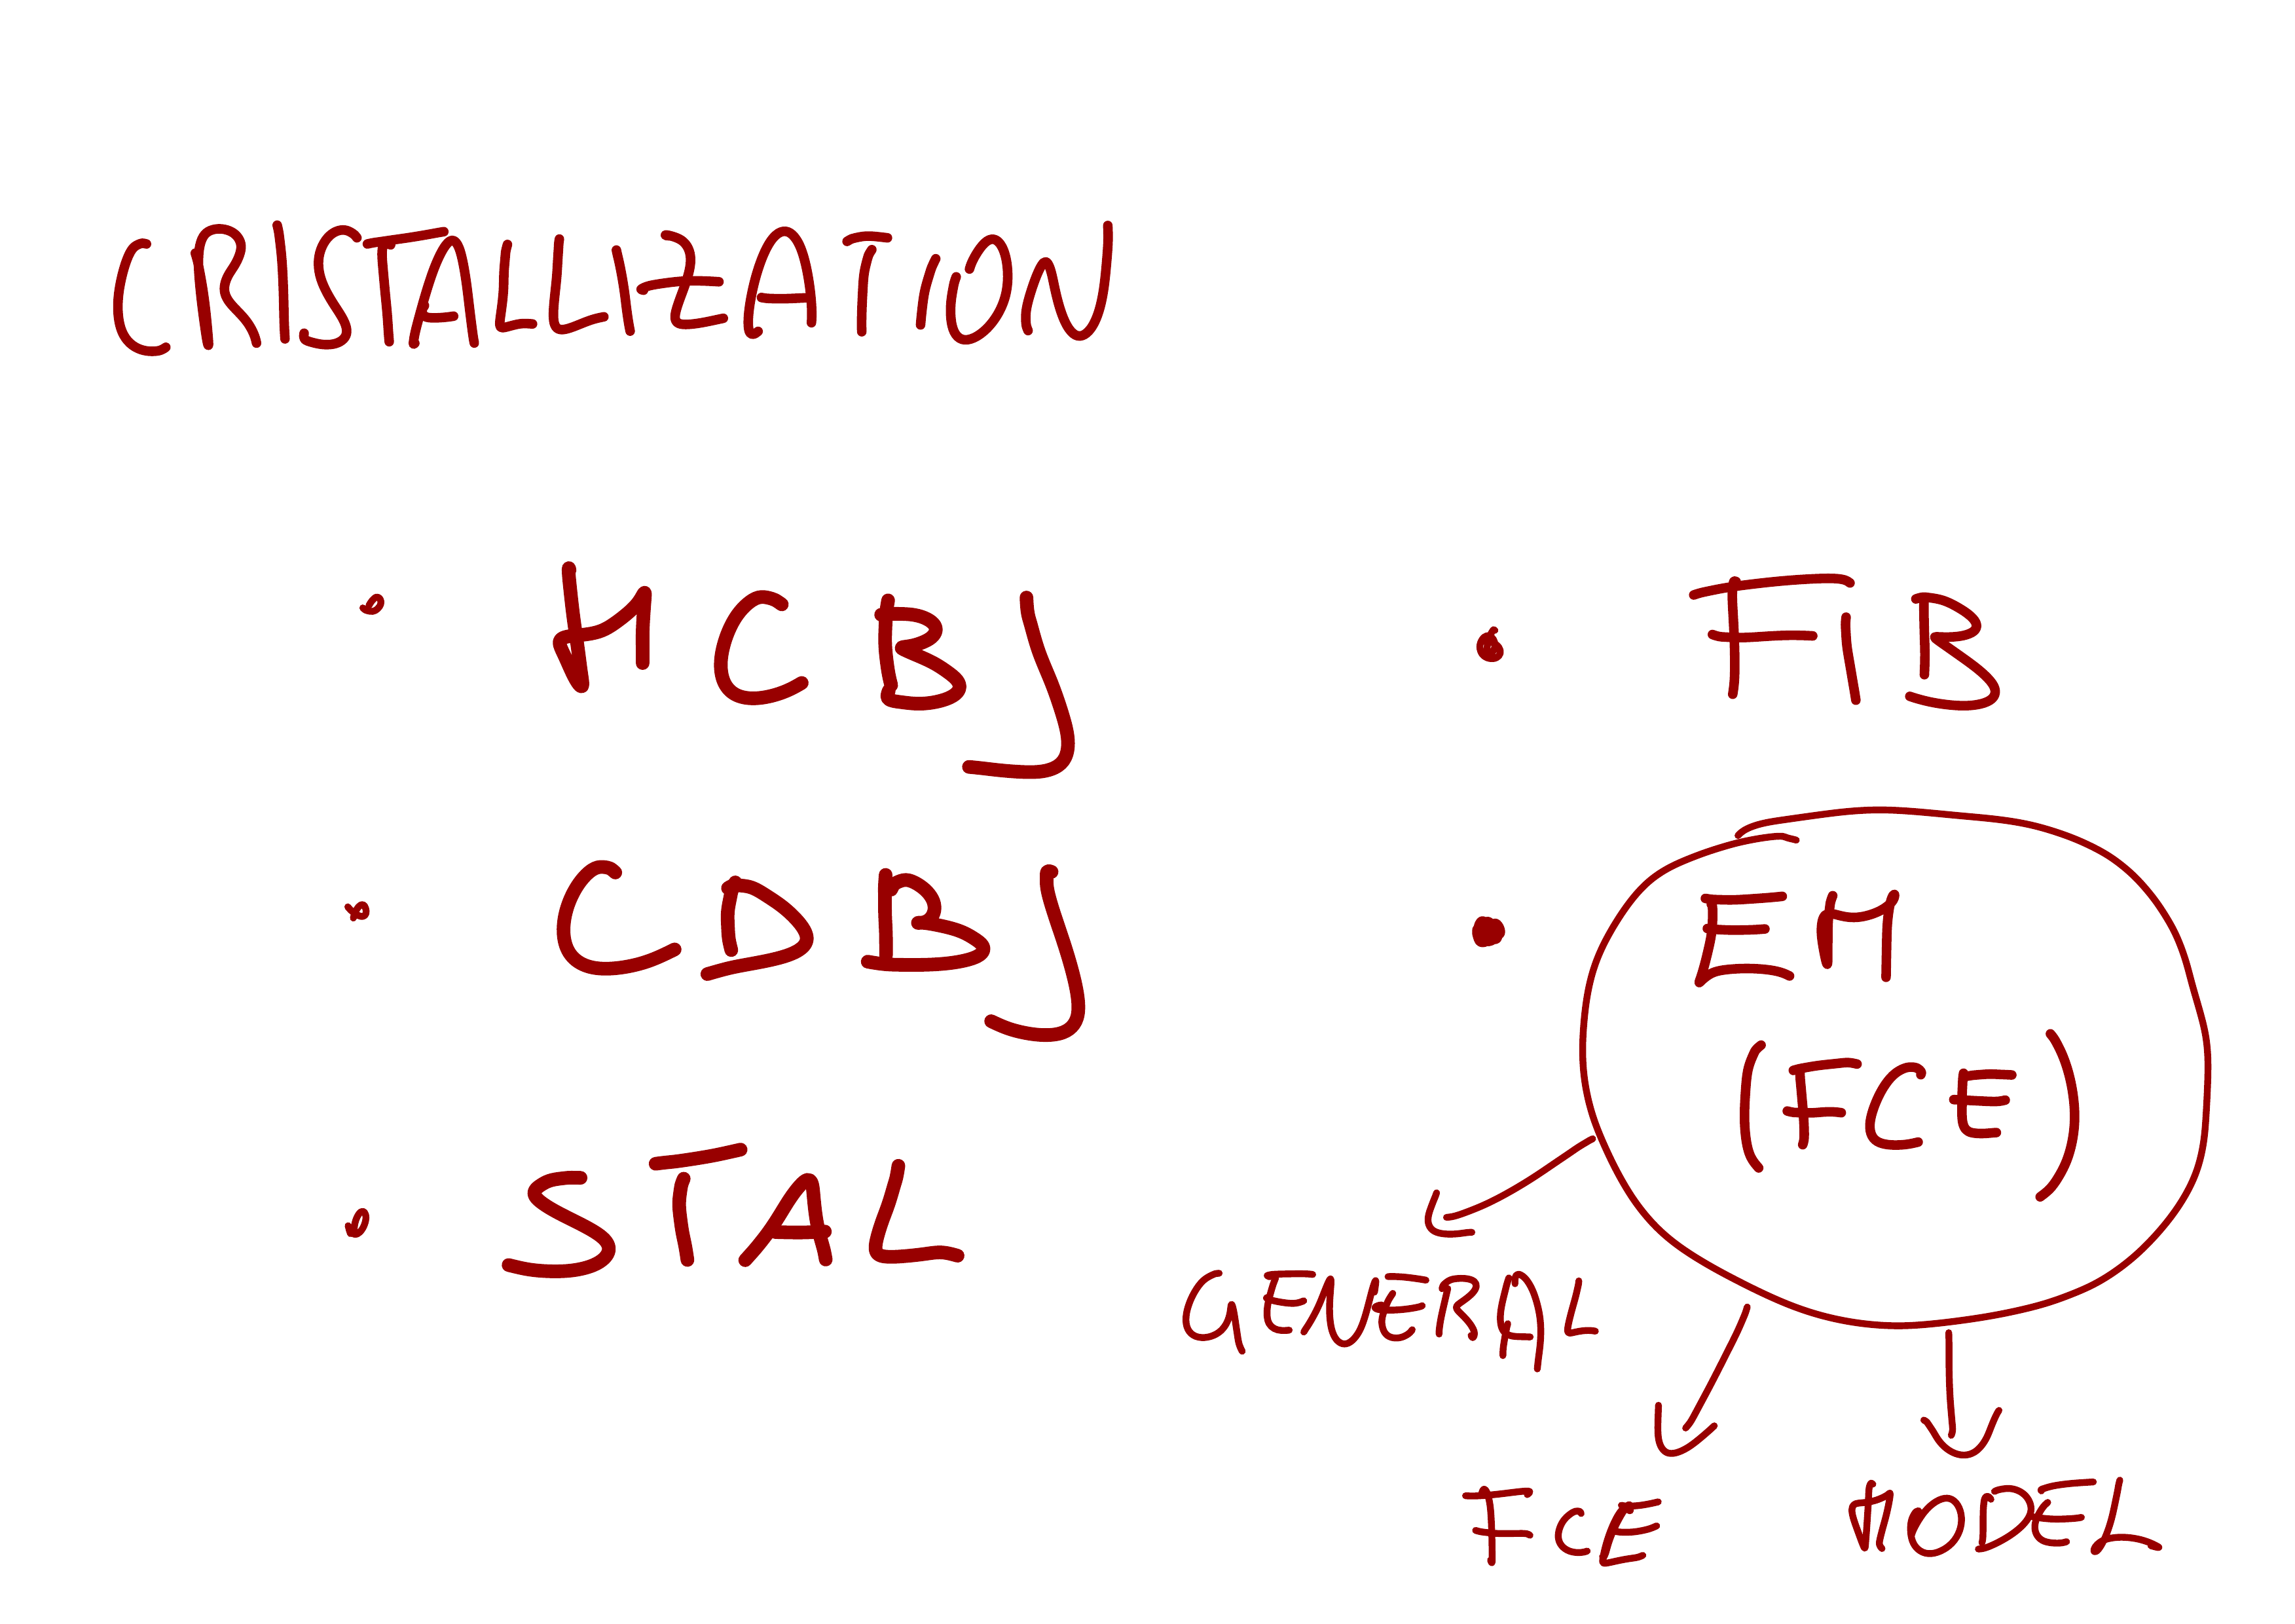 CRISTALLIZATION
• MCBJ
• CDBJ
• STAL
• FIB
• EM
(FCE)
GENERAL
FCE
MODEL